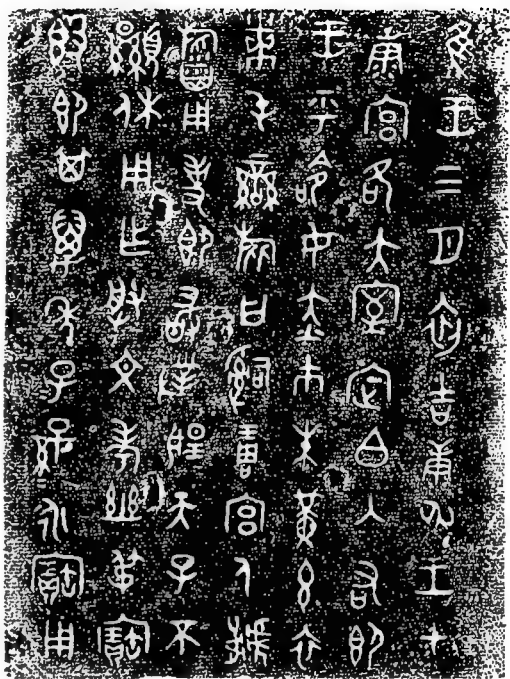 隹王三月初吉庚申王才
康宮各大室定白入右即
王乎命女赤巿朱黃玄衣
黹屯䜌旂曰嗣琱宮人虩
㫃用事即敢對揚天子不
顯休用乍朕文考幽弔寶
𣪘即其萬年子孫永寶用